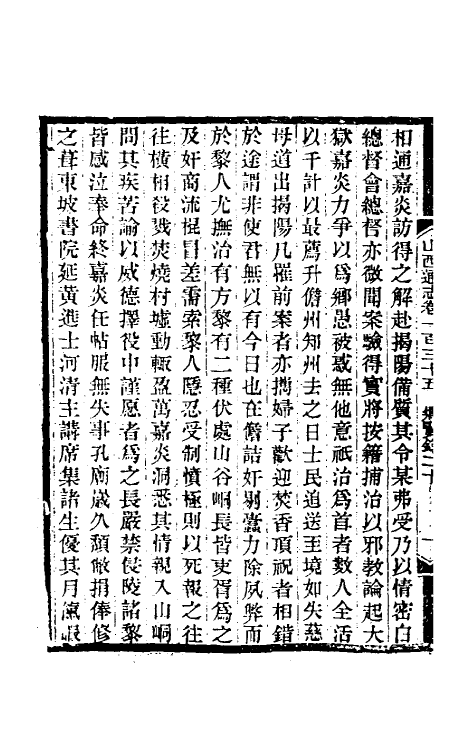 山西通志卷一百三十五 鄉賢錄二十
相通嘉炎訪得之解赴揭陽備質其令某弗受乃以情密白
總督會總督亦微聞案驗得實將按籍捕治以邪教論起大
獄嘉炎力爭以爲鄉愚被惑無他意祇治爲首者數人全活
以千計以最薦升儋州知州去之日士民追送至境如失慈
母道出揭陽凡罹前案者亦攜婦子歡迎焚香頂祝者相錯
於途謂非使君無以有今日也在儋詰奸剔蠹力除夙弊而
於黎人尤撫治有方黎有二種伏處山谷峒長皆吏胥爲之
及奸商流棍冒差需索黎人隱忍受制憤極則以死報之往
往橫相殺戮焚燒村墟動輒盈萬嘉炎洞悉其情親入山峒
問其疾苦諭以威德擇役中謹愿者爲之長嚴禁侵陵諸黎
皆感泣奉命終嘉炎任帖服無失事孔廟歲久頹敝捐俸修
之葺東坡書院延黃進士河清主講席集諸生優其月廩嘏